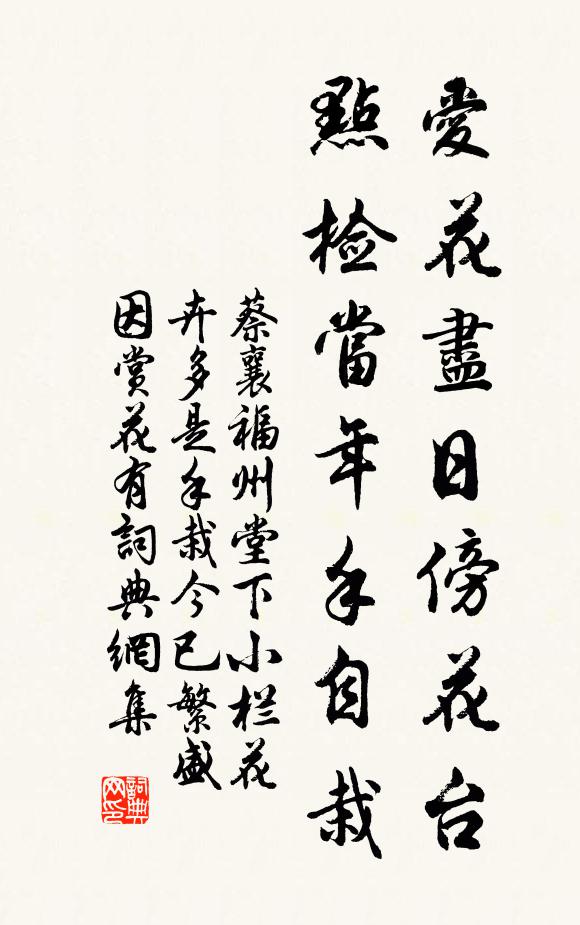 愛花盡日傍花台
點檢當年手自栽
蔡襄福州堂下小栏花
卉多是手栽今已繁盛
因赏花有詞典網集
詞典网印